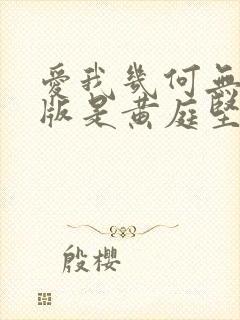 愛我幾何無
版是黄庭堅
殷櫻